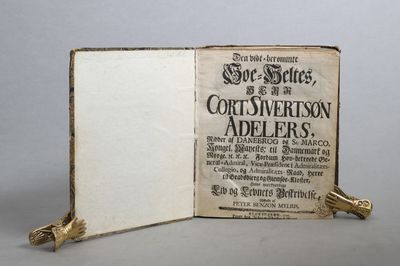 Den vidt-berømte
Søe-Heltes,
HERR
CORT SIVERTSØN
ADELERS,
Ridder af DANEBROG og St. MARCO,
Kongel. Mayests. til Dannemark og
Norge, ꝛc. ꝛc. ꝛc. Fordum Høy-betroede Ge-
neral-Admiral, Vice-Præsident i Admiralitets-
Collegio, og Admiralitets-Raad, Herre
til Bradsbierg og Giemsøe-Kloster,
Liv og Levnets Beskrivelse,
PETER BENZON MYLIUS,